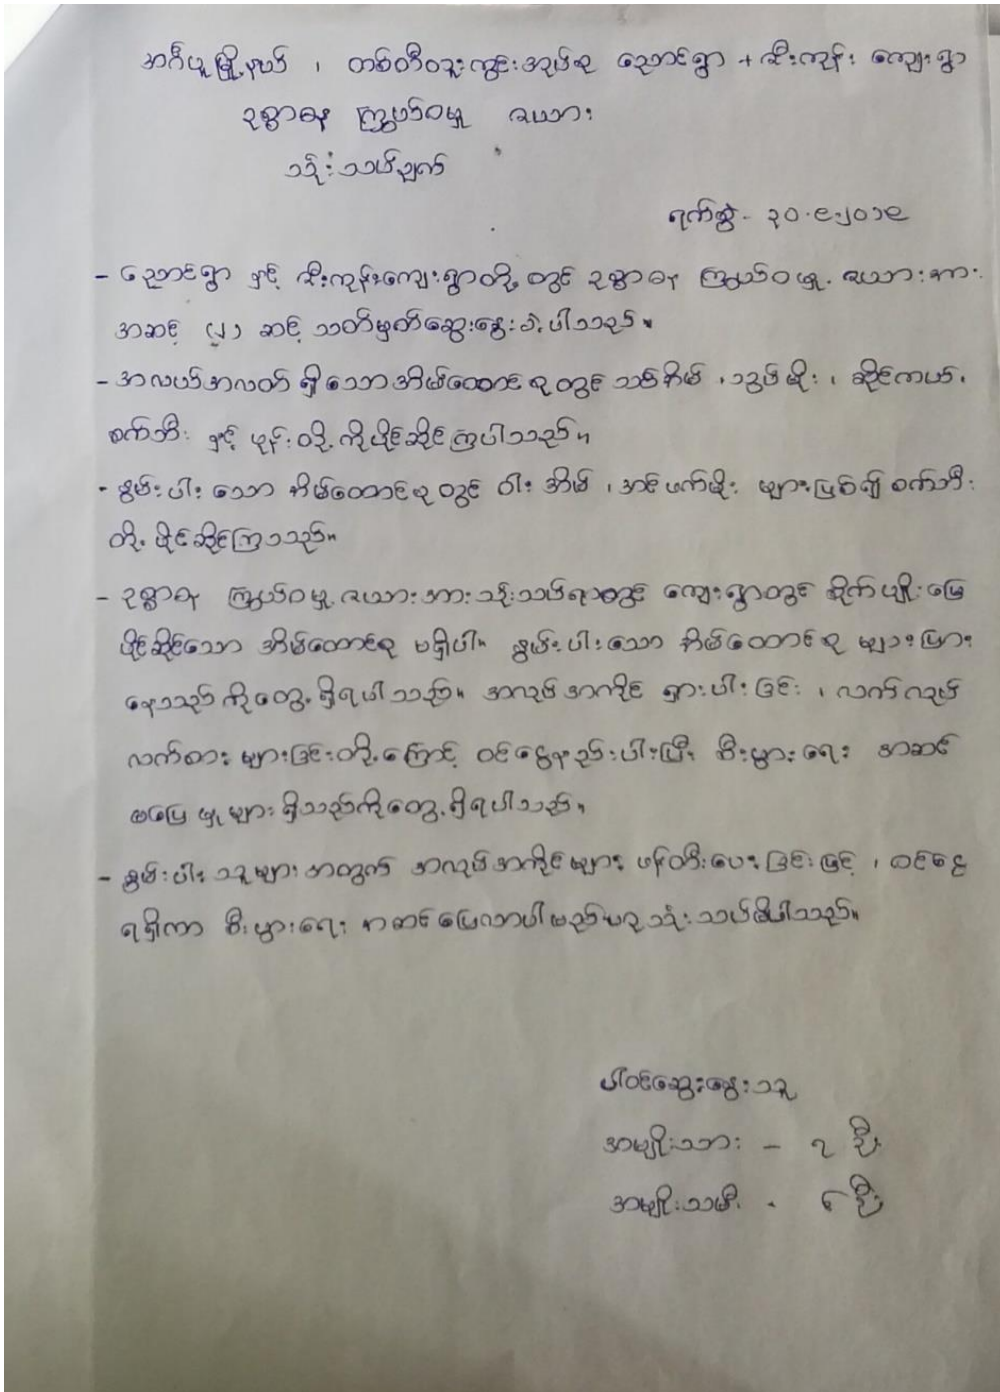 အင်္ဂပူမြို့နယ် ၊ တစ်တီတူးကွင်းအုပ်စု ညောင်ရွာ + ဇီးကုန်း ကျေးရွာ
ဥစ္စာဓန ကြွယ်ဝမှု ဇယား
သုံးသပ်ချက်
ရက်စွဲ - ၃၀.၉.၂၀၁၉
- ညောင်ရွာ နှင့် ဇီးကုန်းကျေးရွာတို့တွင် ဥစ္စာဓန ကြွယ်ဝမှု ဇယားအား
အဆင့် (၂) ဆင့် သတ်မှတ်ဆွေးနွေးခဲ့ပါသည်။
- အလယ်အလတ် ရှိသောအိမ်ထောင်စုတွင် သစ်အိမ် ၊ သွပ်မိုး ၊ ဆိုင်ကယ် ၊
စက်ဘီး နှင့် ဖုန်းတို့ကိုပိုင်ဆိုင်ကြပါသည်။
- နွမ်းပါးသော အိမ်ထောင်စုတွင် ဝါးအိမ် ၊ အင်ဖက်မိုး များဖြစ်၍ စက်ဘီး
တို့ ပိုင်ဆိုင်ကြသည်။
- ဥစ္စာဓန ကြွယ်ဝမှု ဇယားအားသုံးသပ်ရာတွင် ကျေးရွာတွင် စိုက်ပျိုးမြေ
ပိုင်ဆိုင်သော အိမ်ထောင်စု မရှိပါ။ နွမ်းပါးသော အိမ်ထောင်စု များပြား
နေသည်ကိုတွေ့ရှိရပါသည်။ အလုပ်အကိုင် ရှားပါးခြင်း ၊ လက်လုပ်
လက်စား များခြင်းတို့ကြောင့် ဝင်ငွေနည်းပါးပြီး စီးပွားရေး အဆင်
မပြေမှုများ ရှိသည်ကိုတွေ့ရှိရပါသည်။
- နွမ်းပါးသူများအတွက် အလုပ်အကိုင်များ ဖန်တီးပေးခြင်းဖြင့် ၊ ဝင်ငွေ
ရရှိကာ စီးပွားရေး အဆင်ပြေလာပါမည်ဟုသုံးသပ်မိပါသည်။
ပါဝင်ဆွေးနွေးသူ
အမျိုးသား - ၇ ဦး
အမျိုးသမီး - ၆ ဦး